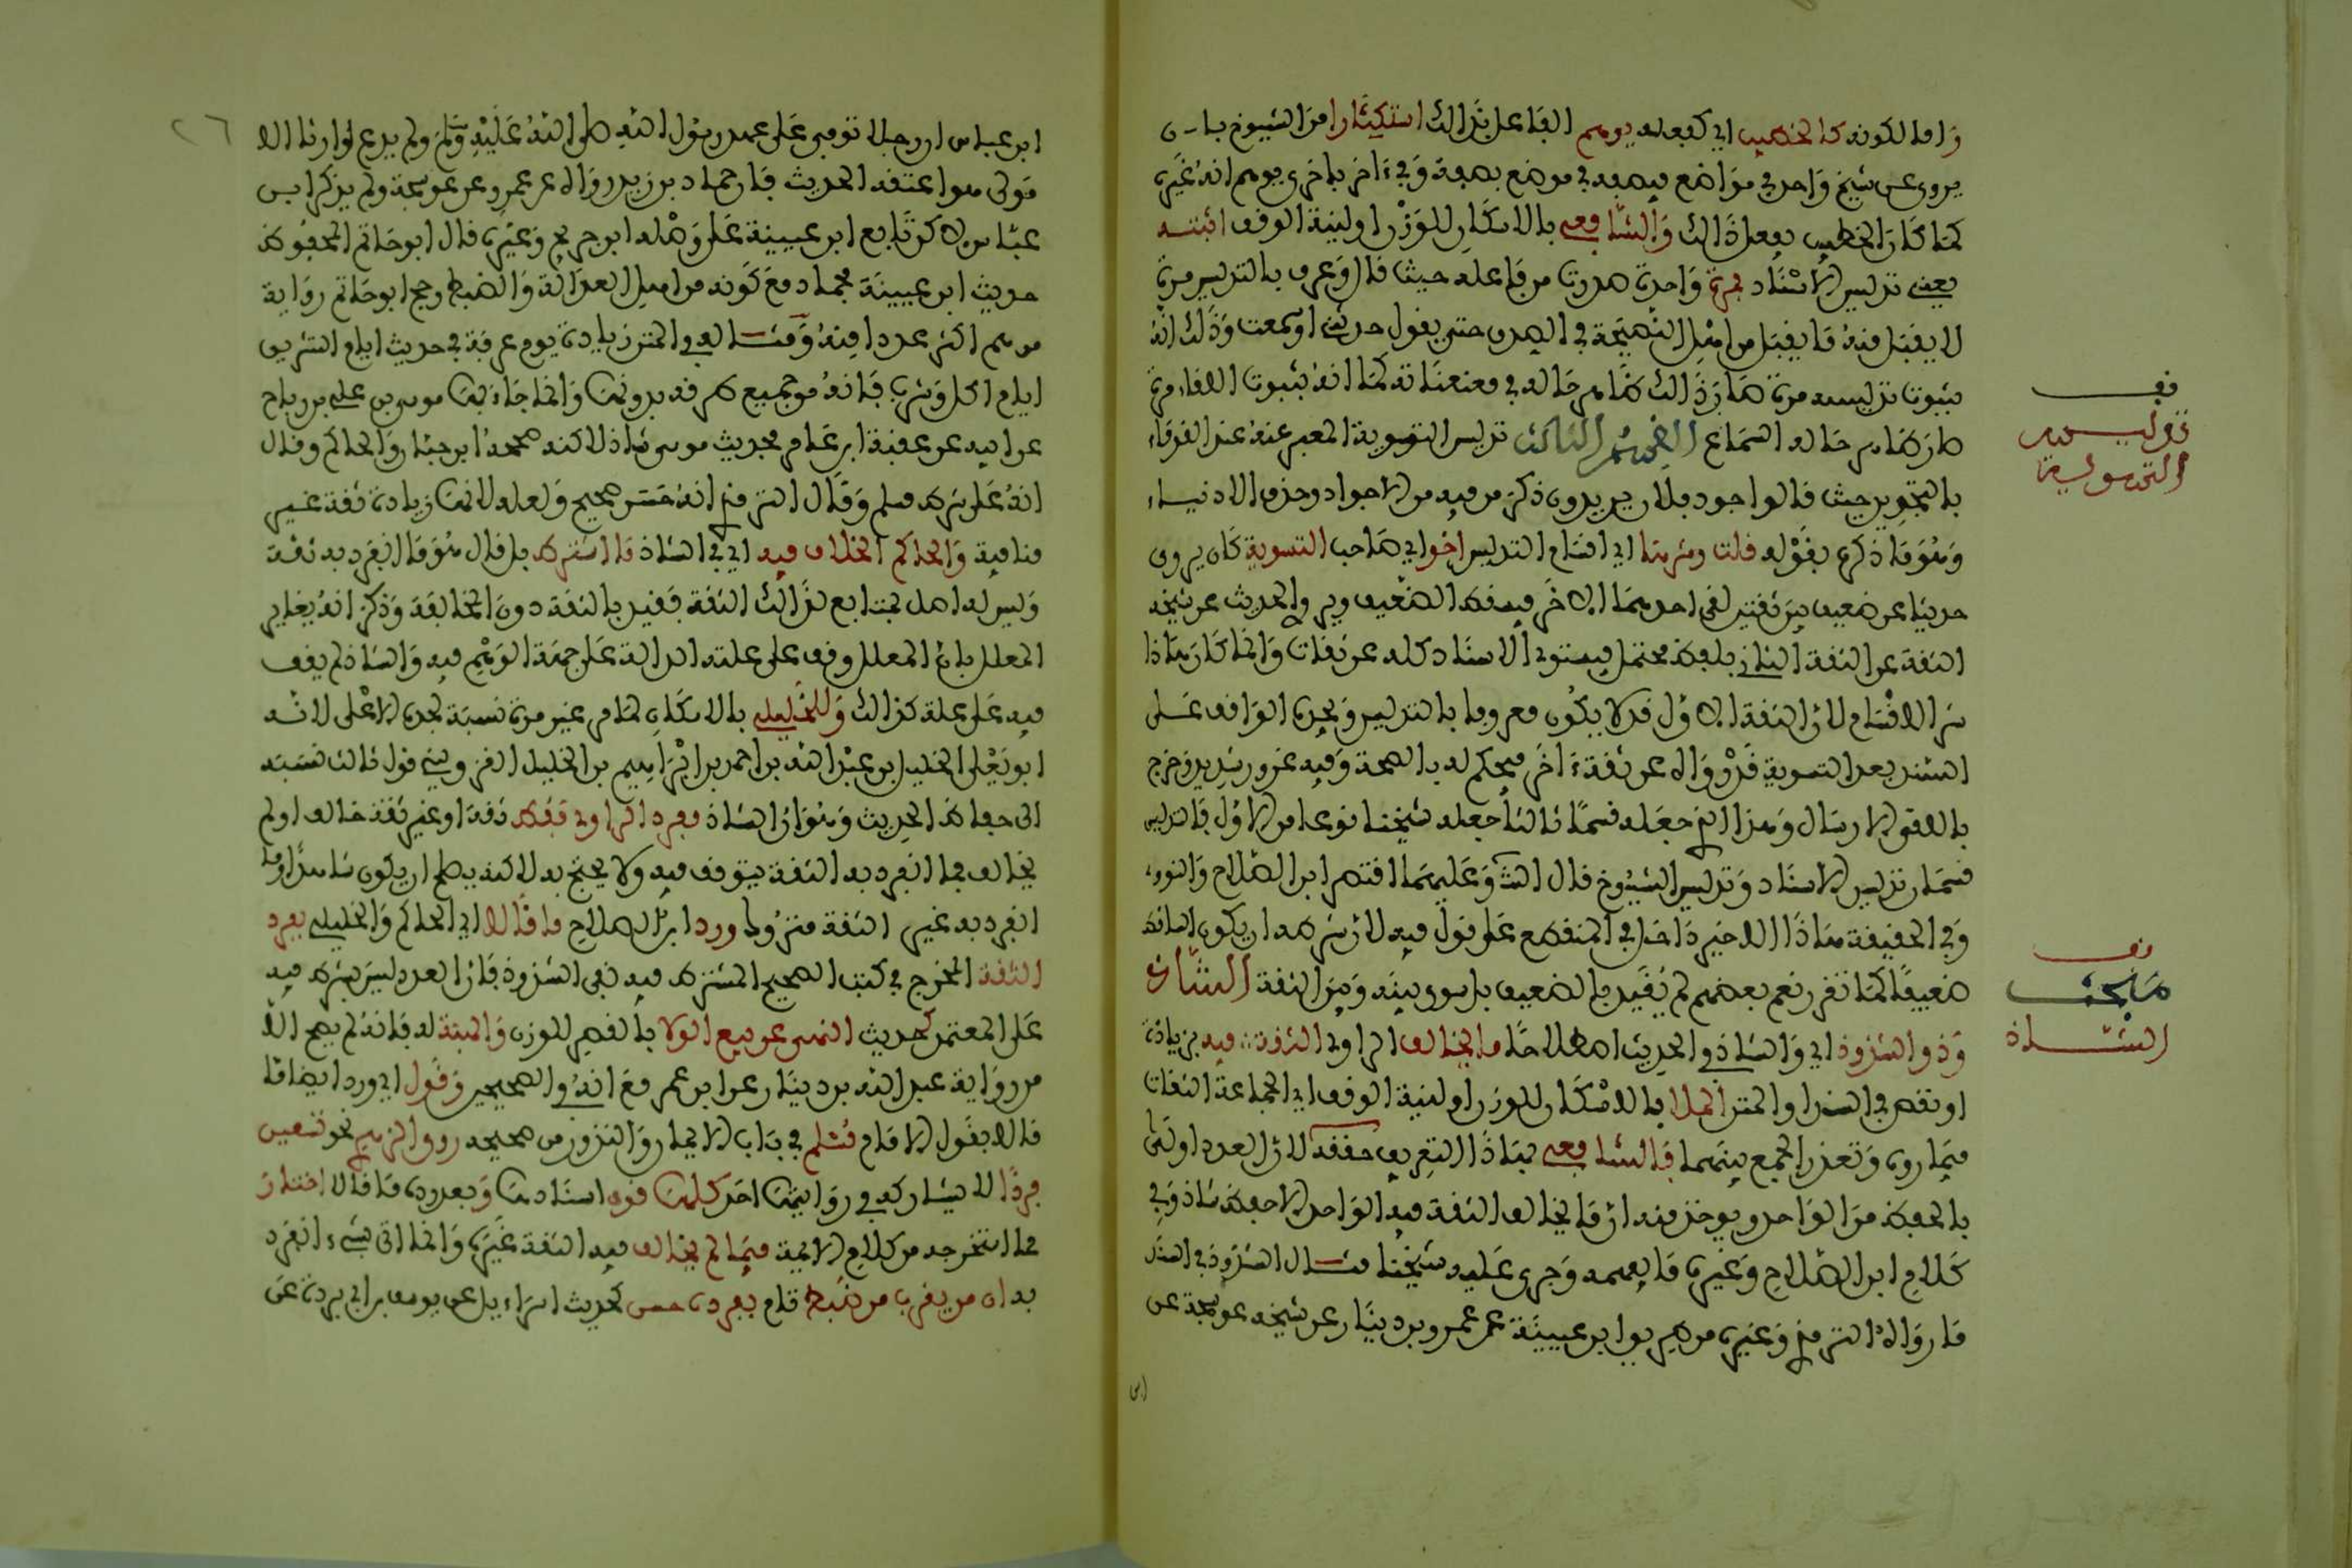 واما لكونه كالخطيب اي كفعله يوهم الفاعل بذالك استكثارا من الشيوخ بان
يروي عن شيخ واحد في مواضع فيصفه في موضع بصفة وفي ءاخر باخرى يوهم انه غيره
كما كان الخطيب يفعل ذالك والشافعي بالاسكان للوزن او لنية الوقف اثبته
يعني تدليس الاسناد بمرة واحدة صدرت من فاعله حيث قال ومن عرف بالتدليس مرة
لا يقبل منه ما يقبل من اهل النصيحة في الصدق حتى يقول حدثني او سمعت وذلك انه
بثبوت تدليسه مرة صار ذالك ظاهر حاله في معنعناته كما انه بثبوت اللقاء مرة
صار ظاهر حاله السماع القسم الثالث تدليس التسوية المعبر عنه عند القدماء
بالتجويد حيث قالوا جوده فلان يريدون ذكر من فيه من الاجواد وحذف الادنياء
وهو ما ذكره بقوله قلت وشرها اي اقسام التدليس اخو اي صاحب التسوية كان يروي
حديثا عن ضعيف بين ثقتين لقي احدهما الاخر فيسقط الضعيف ويروي الحديث عن شيخه
الثقة عن الثقة الثاني بلفظ محتمل فيستوي الاسناد كله عن ثقات وانما كان هاذا
شر الاقسام لان الثقة الاول قد لا يكون معروفا بالتدليس ويجده الواقف على
السند بعد التسوية قد رواه عن ثقة ءاخر فيحكم له بالصحة وفيه غرور شديد وخرج
باللقي الارسال وهذا الذي جعله قسما ثالثا جعله شيخنا نوعا من الاول فالتدليس
قسمان تدليس الاسناد وتدليس الشيوخ قال وعليهما اقتصر ابن الصلاح والنووي
وفي الحقيقة هاذا الاخير داخل في المنقطع على قول فيه لان شرطه ان يكون الساقط
ضعيفا كما تقدم نعم بعضهم لم يقيد بالضعيف بل سوى بينه وبين الثقة الشاذ
وذو الشذوذ اي والشاذ في الحديث اصطلاحا ما يخالف الراوي الثقة فيه بزيادة
او نقص في السند او المتن الملا بالاسكان للوزن او لنية الوقف اي الجماعة الثقات
فيما روى وتعذر الجمع بينهما فالشافعي بهاذا التعريف حققه لان العدد اولى
بالحفظ من الواحد ويوخذ منه ان ما يخالف الثقة فيه الواحد الاحفظ شاذ وفي
كلام ابن الصلاح وغيره ما يفهمه وجرى عليه شيخنا مثال الشذوذ في السند
ما رواه الترمذي وغيره من طريق ابن عيينة عن عمرو بن دينار عن شيخه عوسجة عن
ابن
قف
تدليس
التسوية
قف
مبحث
الشاذ
٢٦
ابن عباس ان رجلا توفي على عهد رسول الله صلى الله عليه وسلم ولم يدع وارثا الا
مولى هو اعتقه الحديث فان حماد بن زيد رواه عن عمرو عن عوسجة ولم يذكر ابن
عباس لاكن تابع ابن عيينة على وصله ابن جريج وغيره قال ابو حاتم المحفوظ
حديث ابن عيينة فحماد مع كونه من اهل العدالة والضبط رجح ابو حاتم رواية
من هم اكثر عددا منه ومثاله في المتن زيادة يوم عرفة في حديث ايام التشريق
ايام اكل وشرب فانه من جميع طرقه بدونها وانما جاء بها موسى بن علي بن رباح
عن ابيه عن عقبة ابن عامر فحديث موسى شاذ لاكنه صححه ابن حبان والحاكم وقال
انه على شرط مسلم وقال الترمذي انه حسن صحيح ولعله لانها زيادة ثقة غير
منافية والحاكم الخلاف فيه اي في الشاذ ما اشترط بل قال هو ما انفرد به ثقة
وليس له اصل بمتابع لذالك الثقة فقيد بالثقة دون المخالفة وذكر انه يغاير
المعلل بان المعلل وقف على علته الدالة على جهة الوهم فيه والشاذ لم يقف
فيه على علة كذالك وللخليلي بالاسكان لما مر غير مرة نسبة لجده الاعلى لانه
ابو يعلى الخليل بن عبد الله بن احمد بن ابراهيم بن الخليل القزويني قول ثالث نسبه
الى حفاظ الحديث وهو ان الشاذ مفرد الراوي فقط ثقة او غير ثقة خالف او لم
يخالف فما انفرد به الثقة يتوقف فيه ولا يحتج به لاكنه يصلح ان يكون شاهدا وما
انفرد به غير الثقة متروك ورد ابن الصلاح ما قالا اي الحاكم والخليلي بفرد
الثقة المخرج في كتب الصحيح المشترط فيه نفي الشذوذ فان العدد ليس بشرط فيه
على المعتمد كحديث النهي عن بيع الولا بالقصر للوزن والهبة له فانه لم يصح الا
من رواية عبد الله بن دينار عن ابن عمر مع انه في الصحيحين وقول اي ورد ايضا ما
قالا بقول الامام مسلم في باب الايمان والنذور من صحيحه روى الزهري نحو تسعين
فردا لا يشاركه في روايتها احد كلها قوي اسنادها وبعد رد ما قالا اختار
مما استخرجه من كلام الايمة فيما لم يخالف فيه الثقة غيره وانما اتى بشيء انفرد
به ان من يقرب من ضبط تام ففرده حسن كحديث اسراءيل عن يوسف بن ابي بردة عن